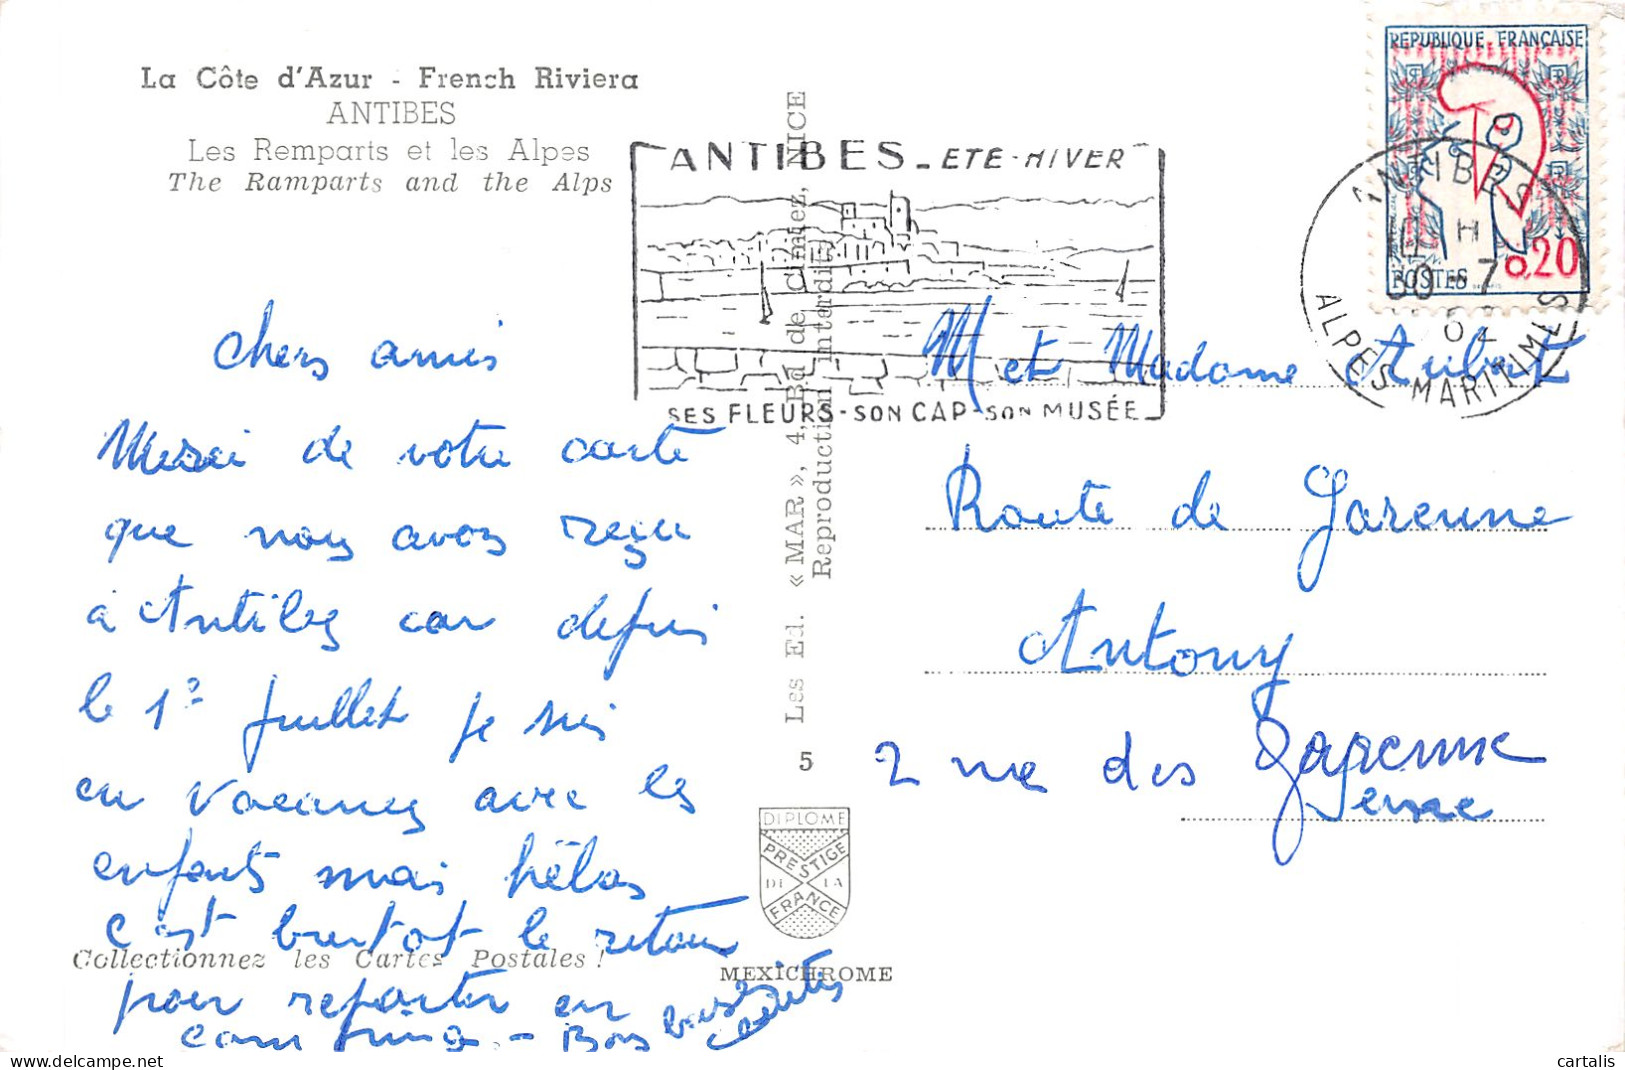 La Côte d'Azur - French Riviera
ANTIBES
Les Remparts et les Alpes
The Ramparts and the Alps
chers amis
Merci de votre carte
que nous avons reçu
à Antibes car depuis
le 1er juillet je suis
en vacances avec les
enfants mais hélas
c'est bientot le retour
pour repartir en
camping. - Bons baisers
Collectionnez les Cartes Postales !
Les Ed. « MAR », 4, Bd de Cimiez, NICE
Reproduction interdite
5
DIPLOME
PRESTIGE
DE LA
FRANCE
MEXICHROME
ANTIBES - ETE - HIVER
SES FLEURS - SON CAP - SON MUSÉE
REPUBLIQUE FRANÇAISE
0,20
POSTES
ANTIBES
H
30 - 7
ALPES MARITIMES
M et Madame Aubert
Route de Garenne
Antony
2 rue des Garenne
Seine
cartalis